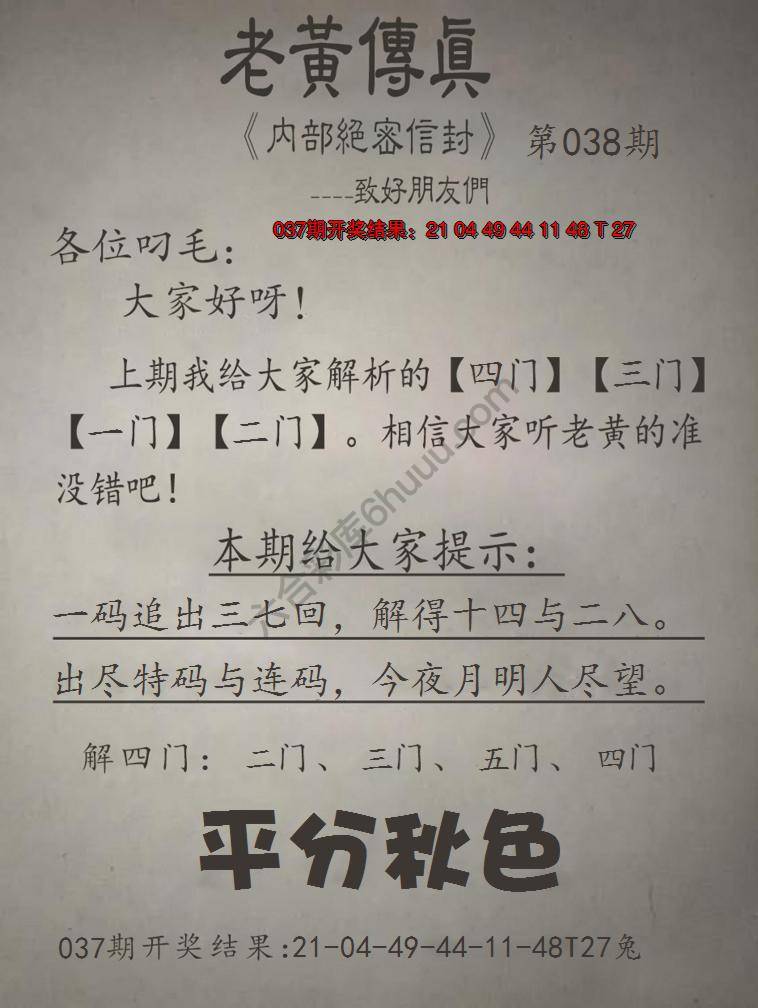 老黃傳眞
《内部絕密信封》 第038期
----致好朋友們
037期开奖结果：21 04 49 44 11 48 T 27
各位叼毛：
大家好呀！
上期我给大家解析的【四门】【三门】
【一门】【二门】。相信大家听老黄的准
没错吧！
六合彩库6huuu.com
本期给大家提示：
一码追出三七回，解得十四与二八。
出尽特码与连码，今夜月明人尽望。
解四门： 二门、 三门、 五门、 四门
平分秋色
037期开奖结果:21-04-49-44-11-48T27兔